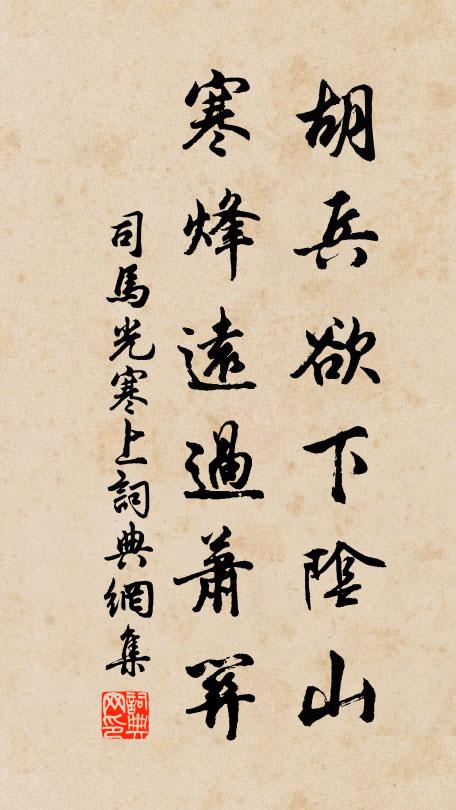 胡兵欲下陰山
寒烽遠過蕭關
司馬光寒上詞典網集
詞典网印